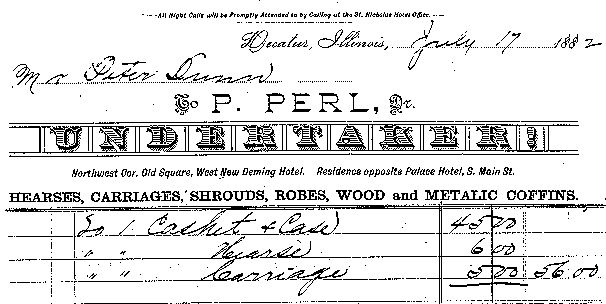 All Night Calls will be Promptly Attended to by Calling at the St. Nicholas Hotel Office.
Decatur, Illinois, July 17 1882
Mr Peter Dunn
To P. PERL, Dr.
UNDERTAKER!
Northwest Cor. Old Square, West New Deming Hotel. Residence opposite Palace Hotel, S. Main St.
HEARSES, CARRIAGES, SHROUDS, ROBES, WOOD and METALIC COFFINS.
To 1 Casket & Case 45 00
" " Hearse 6 00
" " Carriage 5 00 56.00